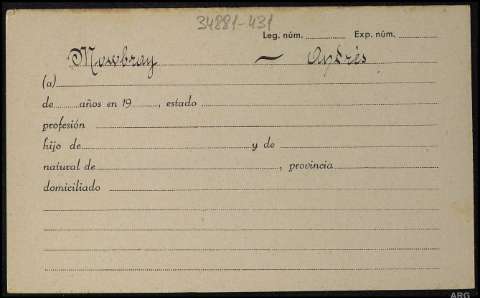 34881-431
Leg. núm. Exp. núm.
Mowbray — Andrés
(a)
de años en 19 , estado
profesión
hijo de y de
natural de , provincia
domiciliado
ARG